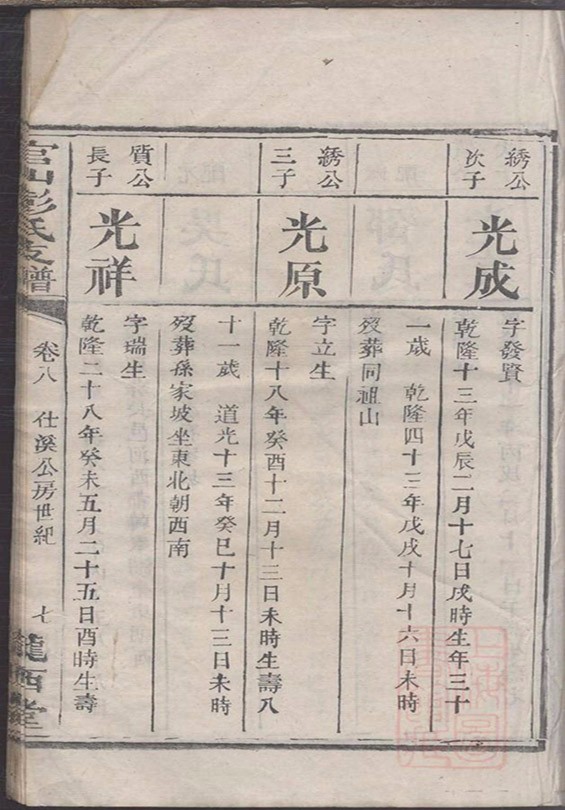 綉公
次子
光成
字發賢
乾隆十三年戊辰二月十七日戌時生年三十
一歲 乾隆四十三年戊戌十月十六日未時
歿葬同祖山
綉公
三子
光原
字立生
乾隆十八年癸酉十二月十三日未時生壽八
十一歲 道光十三年癸巳十月十三日未時
歿葬孫家坡坐東北朝西南
質公
長子
光祥
字瑞生
乾隆二十八年癸未五月二十五日酉時生壽
官山彭氏支譜
卷八 仕溪公房世紀
七
隴西堂